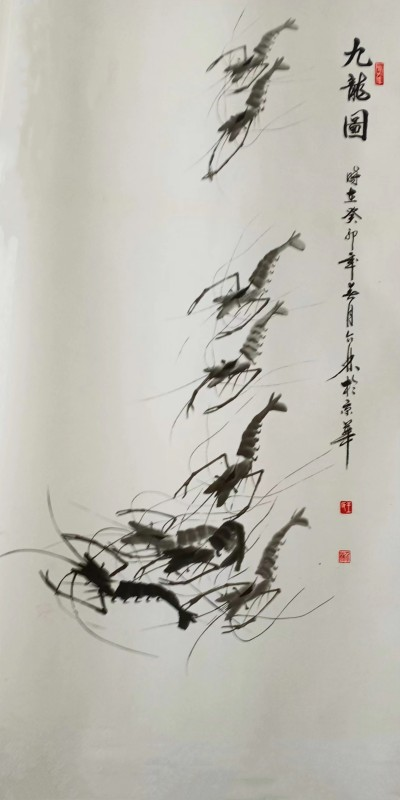 九龍圖
時在癸卯年五月六林於京華